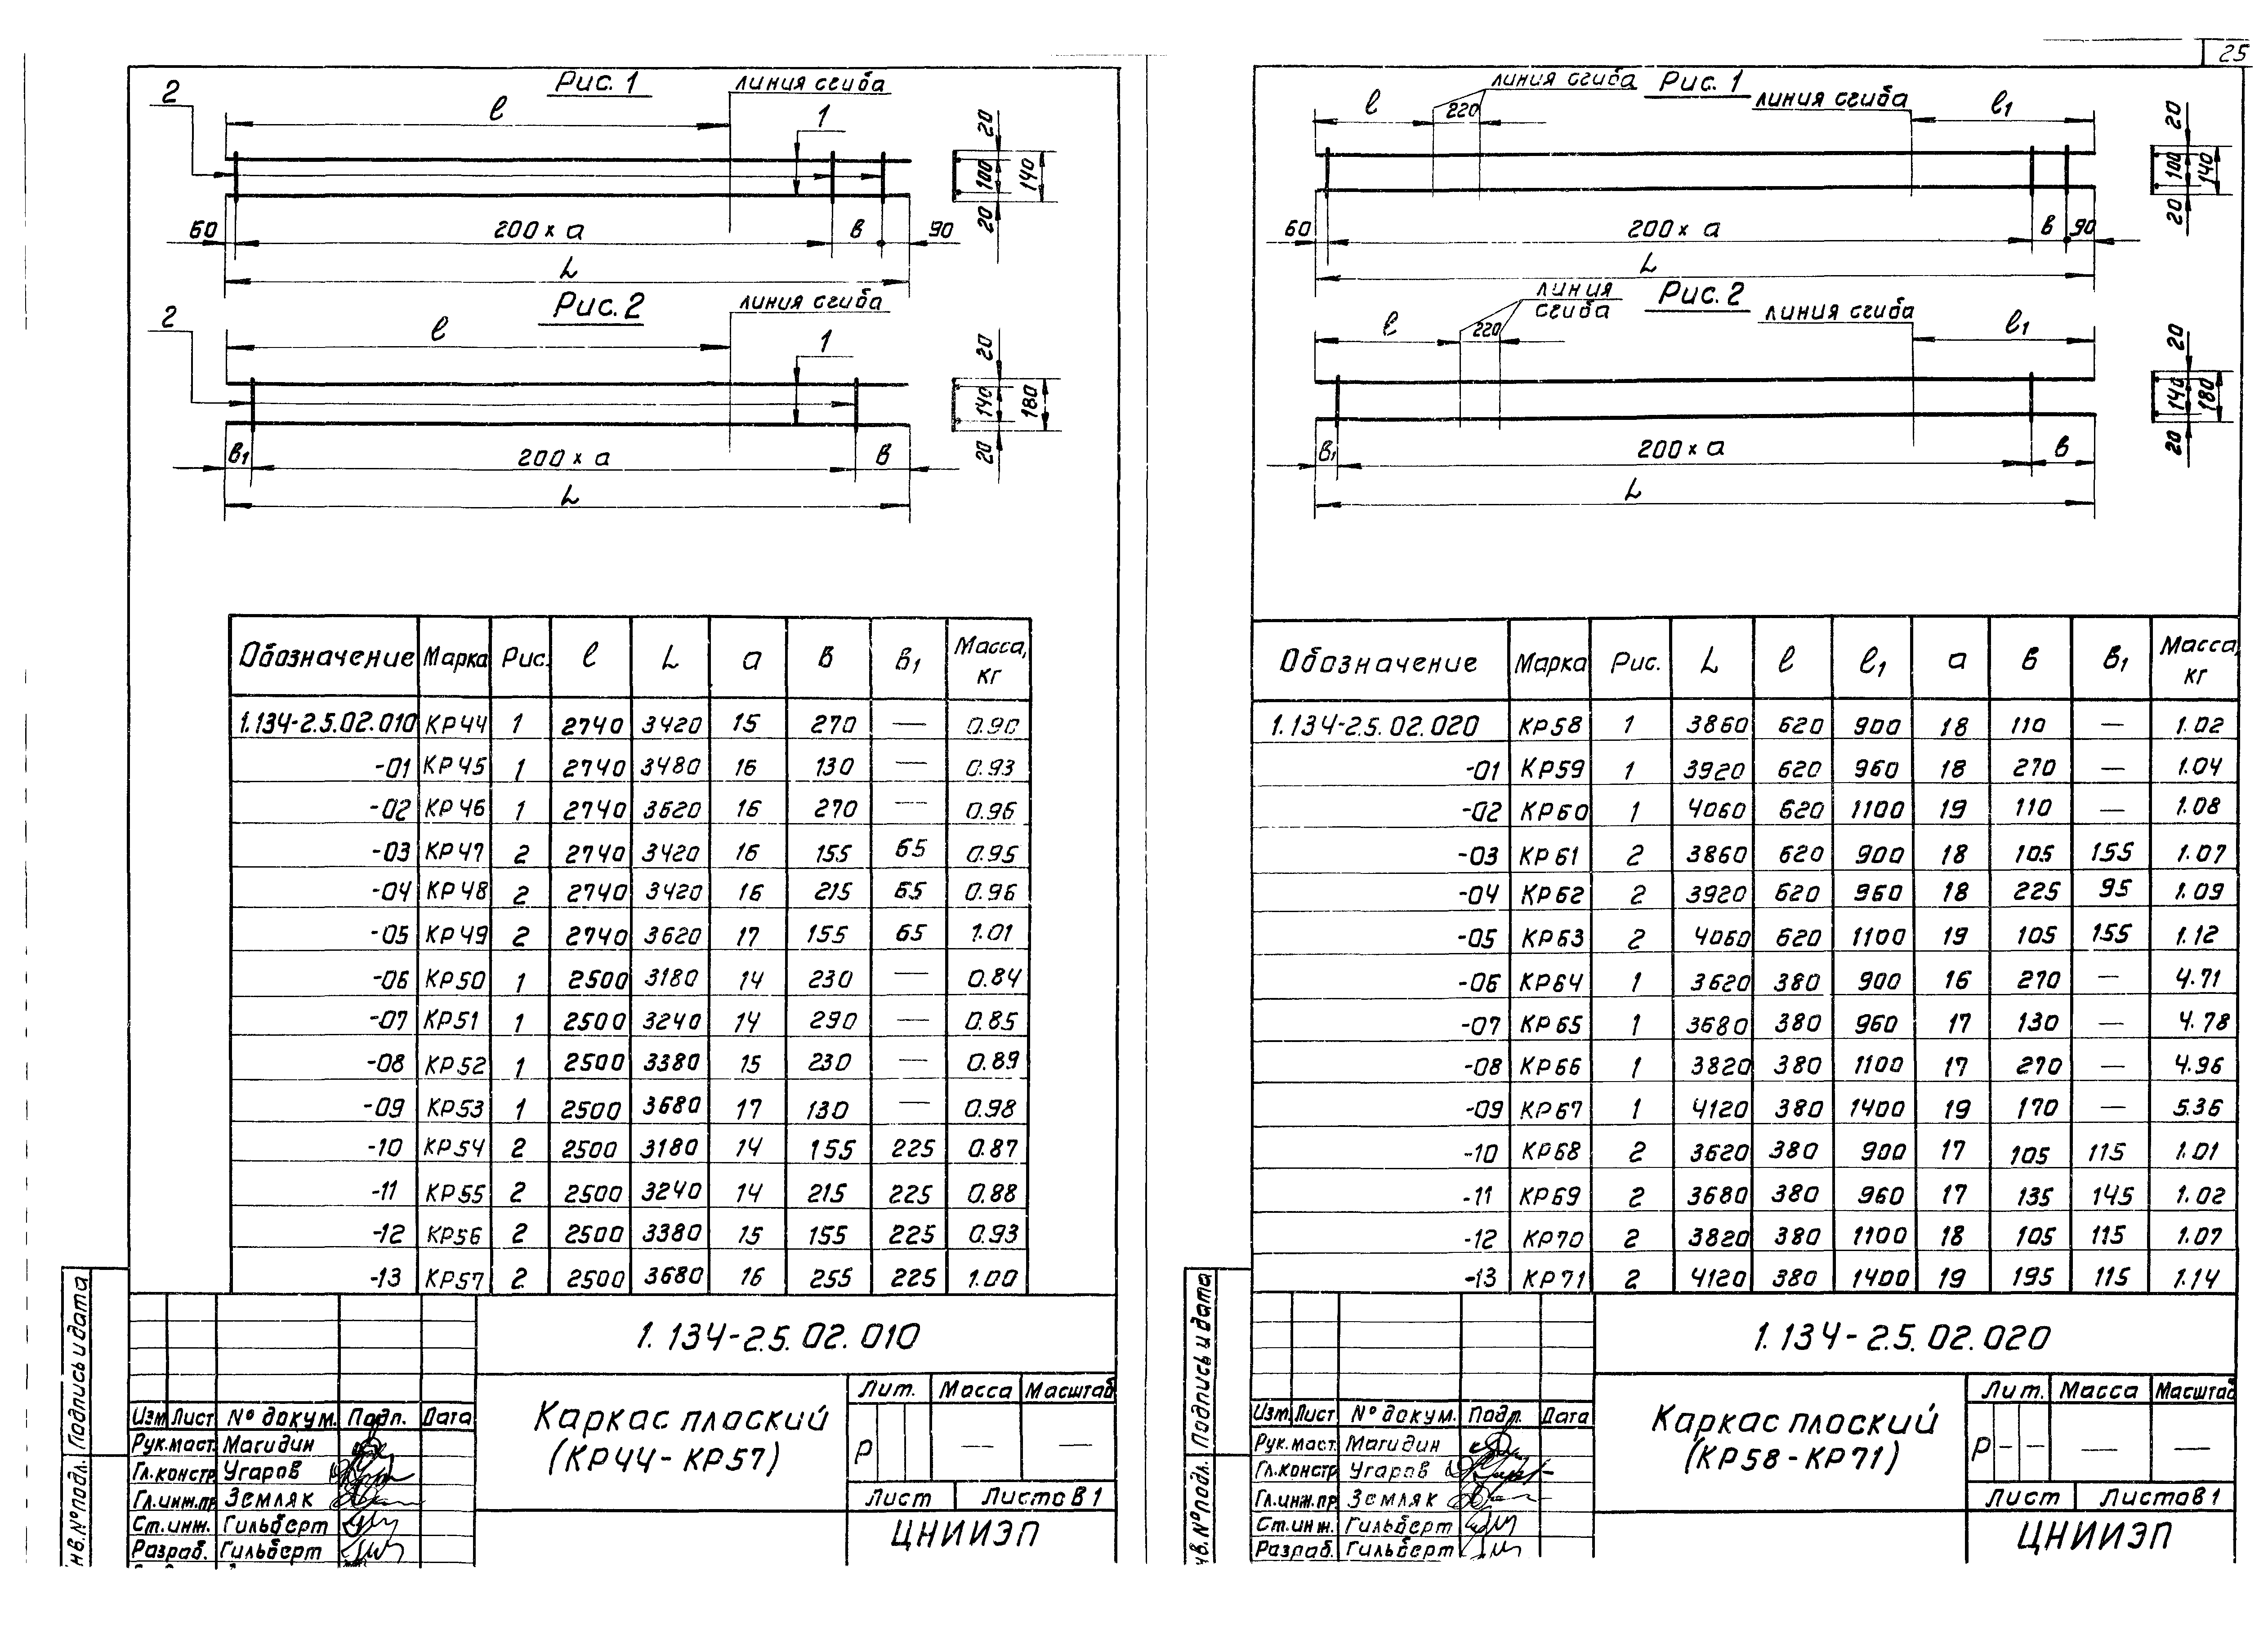 25
Рис. 1
линия сгиба
2
ℓ
1
20
100
140
20
60
200 х а
в
90
L
Рис. 2
линия сгиба
2
ℓ
1
20
140
180
20
в1
200 х а
в
L
Обозначение Марка Рис. ℓ L а в в1 Масса, кг
1.134-2.5.02.010 КР44 1 2740 3420 15 270 — 0.90
-01 КР45 1 2740 3480 16 130 — 0.93
-02 КР46 1 2740 3620 16 270 — 0.96
-03 КР47 2 2740 3420 16 155 65 0.95
-04 КР48 2 2740 3420 16 215 65 0.96
-05 КР49 2 2740 3620 17 155 65 1.01
-06 КР50 1 2500 3180 14 230 — 0.84
-07 КР51 1 2500 3240 14 290 — 0.85
-08 КР52 1 2500 3380 15 230 — 0.89
-09 КР53 1 2500 3680 17 130 — 0.98
-10 КР54 2 2500 3180 14 155 225 0.87
-11 КР55 2 2500 3240 14 215 225 0.88
-12 КР56 2 2500 3380 15 155 225 0.93
-13 КР57 2 2500 3680 16 255 225 1.00
1.134-2.5.02.010
Каркас плоский
(КР44-КР57)
Лит. Масса Масштаб
Р — —
Лист Листов 1
ЦНИИЭП
Изм. Лист № докум. Подп. Дата
Рук.маст. Магидин
Гл.констр. Угаров
Гл.инж.пр. Земляк
Ст.инж. Гильберт
Разраб. Гильберт
Подпись и дата
нв.№ подл.
линия сгиба
Рис. 1
линия сгиба
ℓ
220
ℓ1
20
100
140
20
60
200 х а
в
90
L
линия
сгиба
Рис. 2
линия сгиба
ℓ
220
ℓ1
20
140
180
20
в1
200 х а
в
L
Обозначение Марка Рис. L ℓ ℓ1 а в в1 Масса, кг
1.134-2.5.02.020 КР58 1 3860 620 900 18 110 — 1.02
-01 КР59 1 3920 620 960 18 270 — 1.04
-02 КР60 1 4060 620 1100 19 110 — 1.08
-03 КР61 2 3860 620 900 18 105 155 1.07
-04 КР62 2 3920 620 960 18 225 95 1.09
-05 КР63 2 4060 620 1100 19 105 155 1.12
-06 КР64 1 3620 380 900 16 270 — 4.71
-07 КР65 1 3680 380 960 17 130 — 4.78
-08 КР66 1 3820 380 1100 17 270 — 4.96
-09 КР67 1 4120 380 1400 19 170 — 5.36
-10 КР68 2 3620 380 900 17 105 115 1.01
-11 КР69 2 3680 380 960 17 135 145 1.02
-12 КР70 2 3820 380 1100 18 105 115 1.07
-13 КР71 2 4120 380 1400 19 195 115 1.14
1.134-2.5.02.020
Каркас плоский
(КР58-КР71)
Лит. Масса Масштаб
Р - - — —
Лист Листов 1
ЦНИИЭП
Изм. Лист № докум. Подп. Дата
Рук.маст. Магидин
Гл.констр. Угаров
Гл.инж.пр. Земляк
Ст.инж. Гильберт
Разраб. Гильберт
Подпись и дата
нв.№ подл.